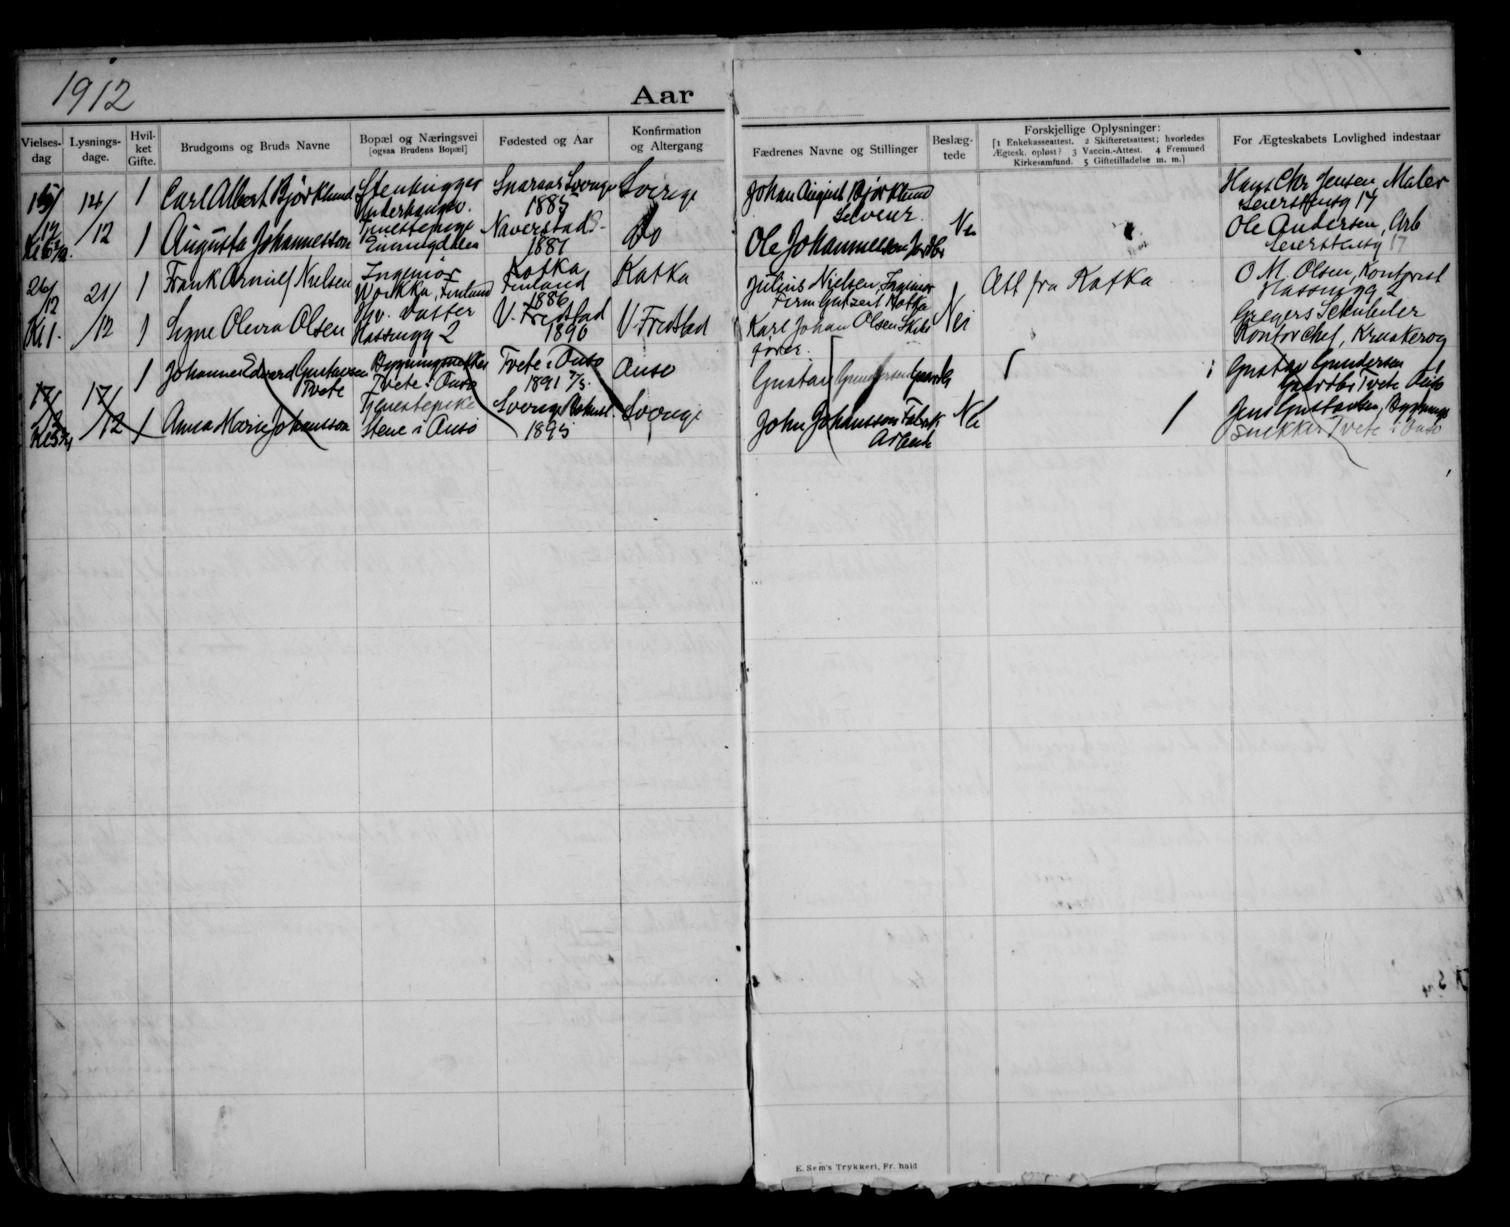 1912
Aar
Vielses-
dag
Lysnings-
dage.
Hvil-
ket
Gifte.
Brudgoms og Bruds Navne
Bopæl og Næringsvei
[ogsaa Brudens Bopæl]
Fødested og Aar
Konfirmation
og Altergang
Fædrenes Navne og Stillinger
Beslæg-
tede
Forskjellige Oplysninger:
[1 Enkekasseattest. 2 Skifteretsattest; hvorledes
Ægtesk. opløst? 3 Vaccin.-Attest. 4 Fremmed
Kirkesamfund. 5 Giftetilladelse m. m.]
For Ægteskabets Lovlighed indestaar
14/12
1
Carl Albert Björklund
Stenhugger
Sverige
1885
Sverige
Johan August Björklund
Hans Chr Jensen, Maler
17
1
Augusta Johannesson
Tjenestepige
Naverstad
1887
do
Ole Johannessen
Nei
Ole Andersen, Arb
17
26/12
Kl 1.
21/12
1
Frank Arnulf Nielsen
Ingeniør
Woikka, Finland
Kotka
Finland
1886
Kotka
Julius Nielsen, Ingeniør
Firm Gutzeit Kotka
Att fra Kotka
O. M. Olsen, Kontorist
Hassingg 2
1
Signe Olevra Olsen
Hjv. Datter
Hassingg 2
V. Fredstad
1890
V. Fredstad
Karl Johan Olsen Skibs
fører.
Nei
Gregers Schübeler
Kontorchef, Kraakerøy
17/12
17/12
1
Johannes Edvard Gustavsen
Tvete
Bygningssnekker
Tvete i Onsø
Tvete i Onsø
1891
Onsø
Gustav Gundersen Gaardb
Gustav Gundersen
Gaardbr Tvete Onsø
1
Anna Marie Johansson
Tjenestepike
Stene i Onsø
Sverige
1895
Sverige
John Johansson Fabrik
Arbeid
Nei
Jens Gustavsen, Bygnings
snekker Tvete i Onsø
E. Sem's Trykkeri, Fr.hald